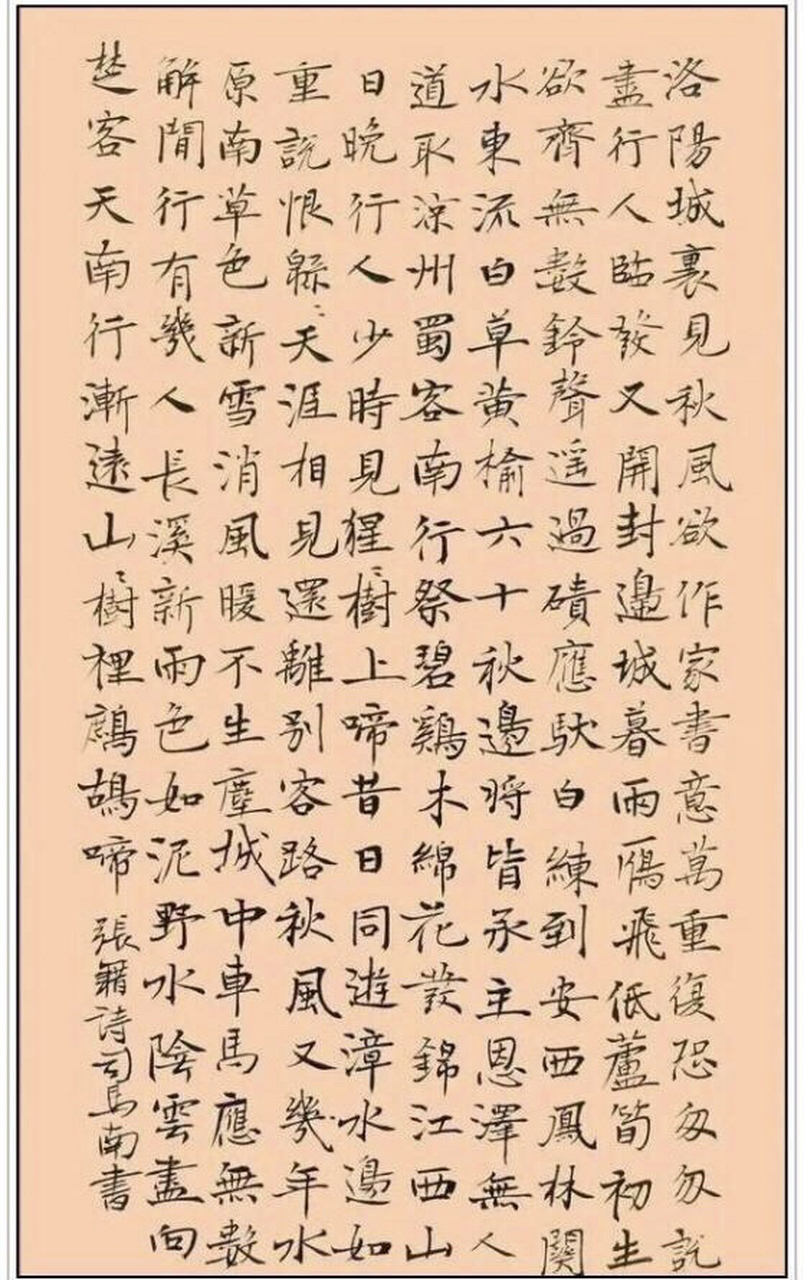 洛陽城裏見秋風欲作家書意萬重復恐匆匆說
盡行人臨發又開封邊城暮雨鴈飛低蘆筍初生
欲齊無數鈴聲遥過磧應馱白練到安西鳳林關
水東流白草黄榆六十秋邊將皆承主恩澤無人
道取涼州蜀客南行祭碧鷄木綿花發錦江西山
日晚行人少時見猩〻樹上啼昔日同遊漳水邊如
重說恨緜〻天涯相見還離别客路秋風又幾年水
原南草色新雪消風暖不生塵城中車馬應無數
解閒行有幾人長溪新雨色如泥野水陰雲盡向
楚客天南行漸遠山〻樹裡鷓鴣啼 張籍詩司馬南書